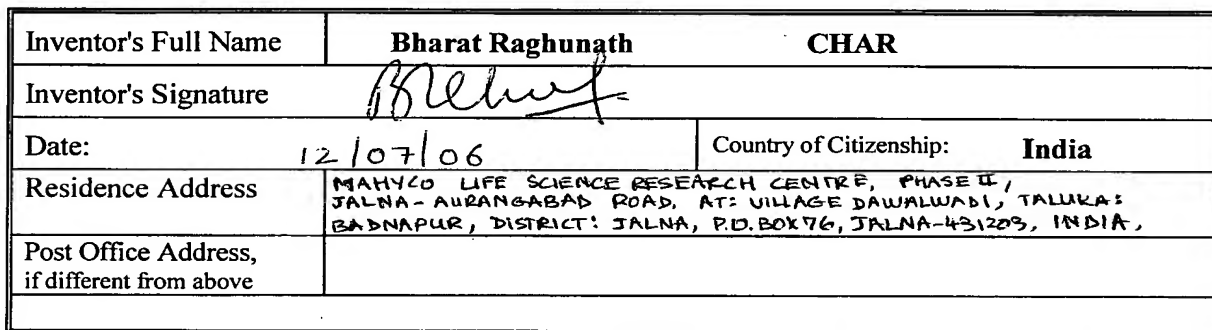 Inventor's Full Name Bharat Raghunath CHAR
Inventor's Signature
Date: 12/07/06 Country of Citizenship: India
Residence Address MAHYCO LIFE SCIENCE RESEARCH CENTRE, PHASE II,
JALNA-AURANGABAD ROAD, AT: VILLAGE DAWALWADI, TALUKA:
BADNAPUR, DISTRICT: JALNA, P.O. BOX 76, JALNA-431203, INDIA,
Post Office Address,
if different from above